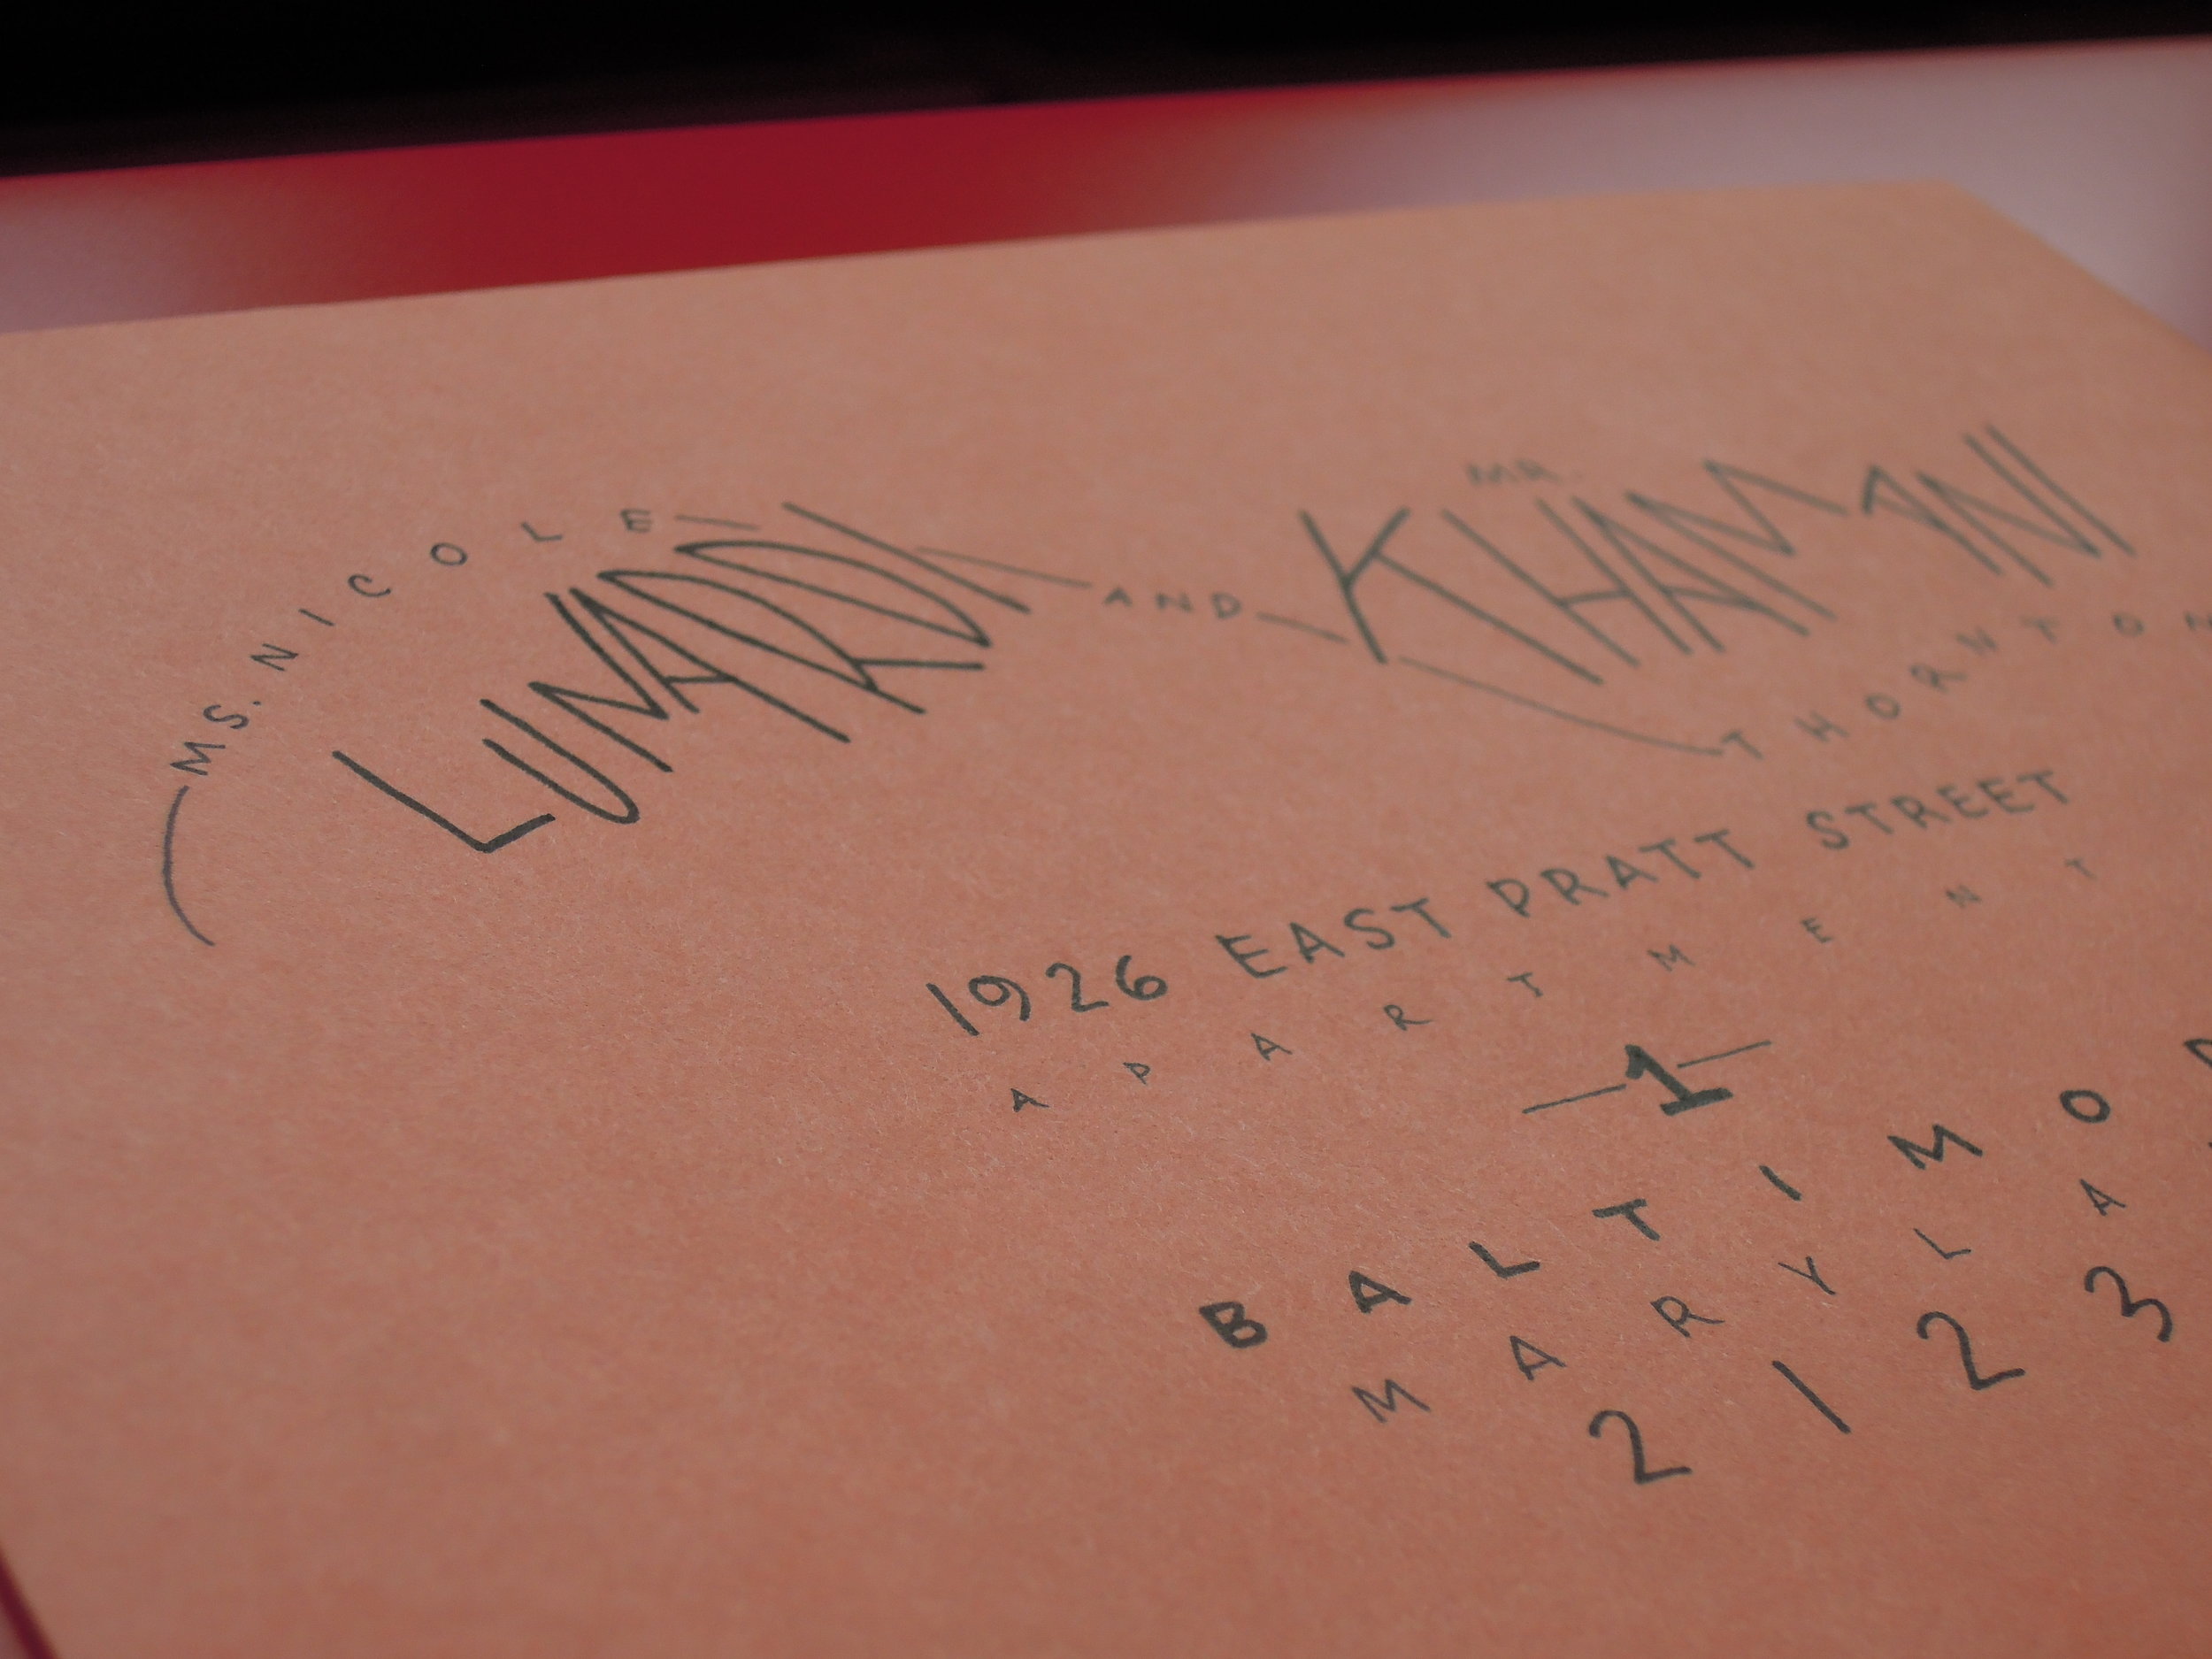 MS. NICOLE
LUNARDI
AND
MR.
KHAMANI
THORNTON
1926 EAST PRATT STREET
APARTMENT
1
BALTIMO
MARYLA
2123